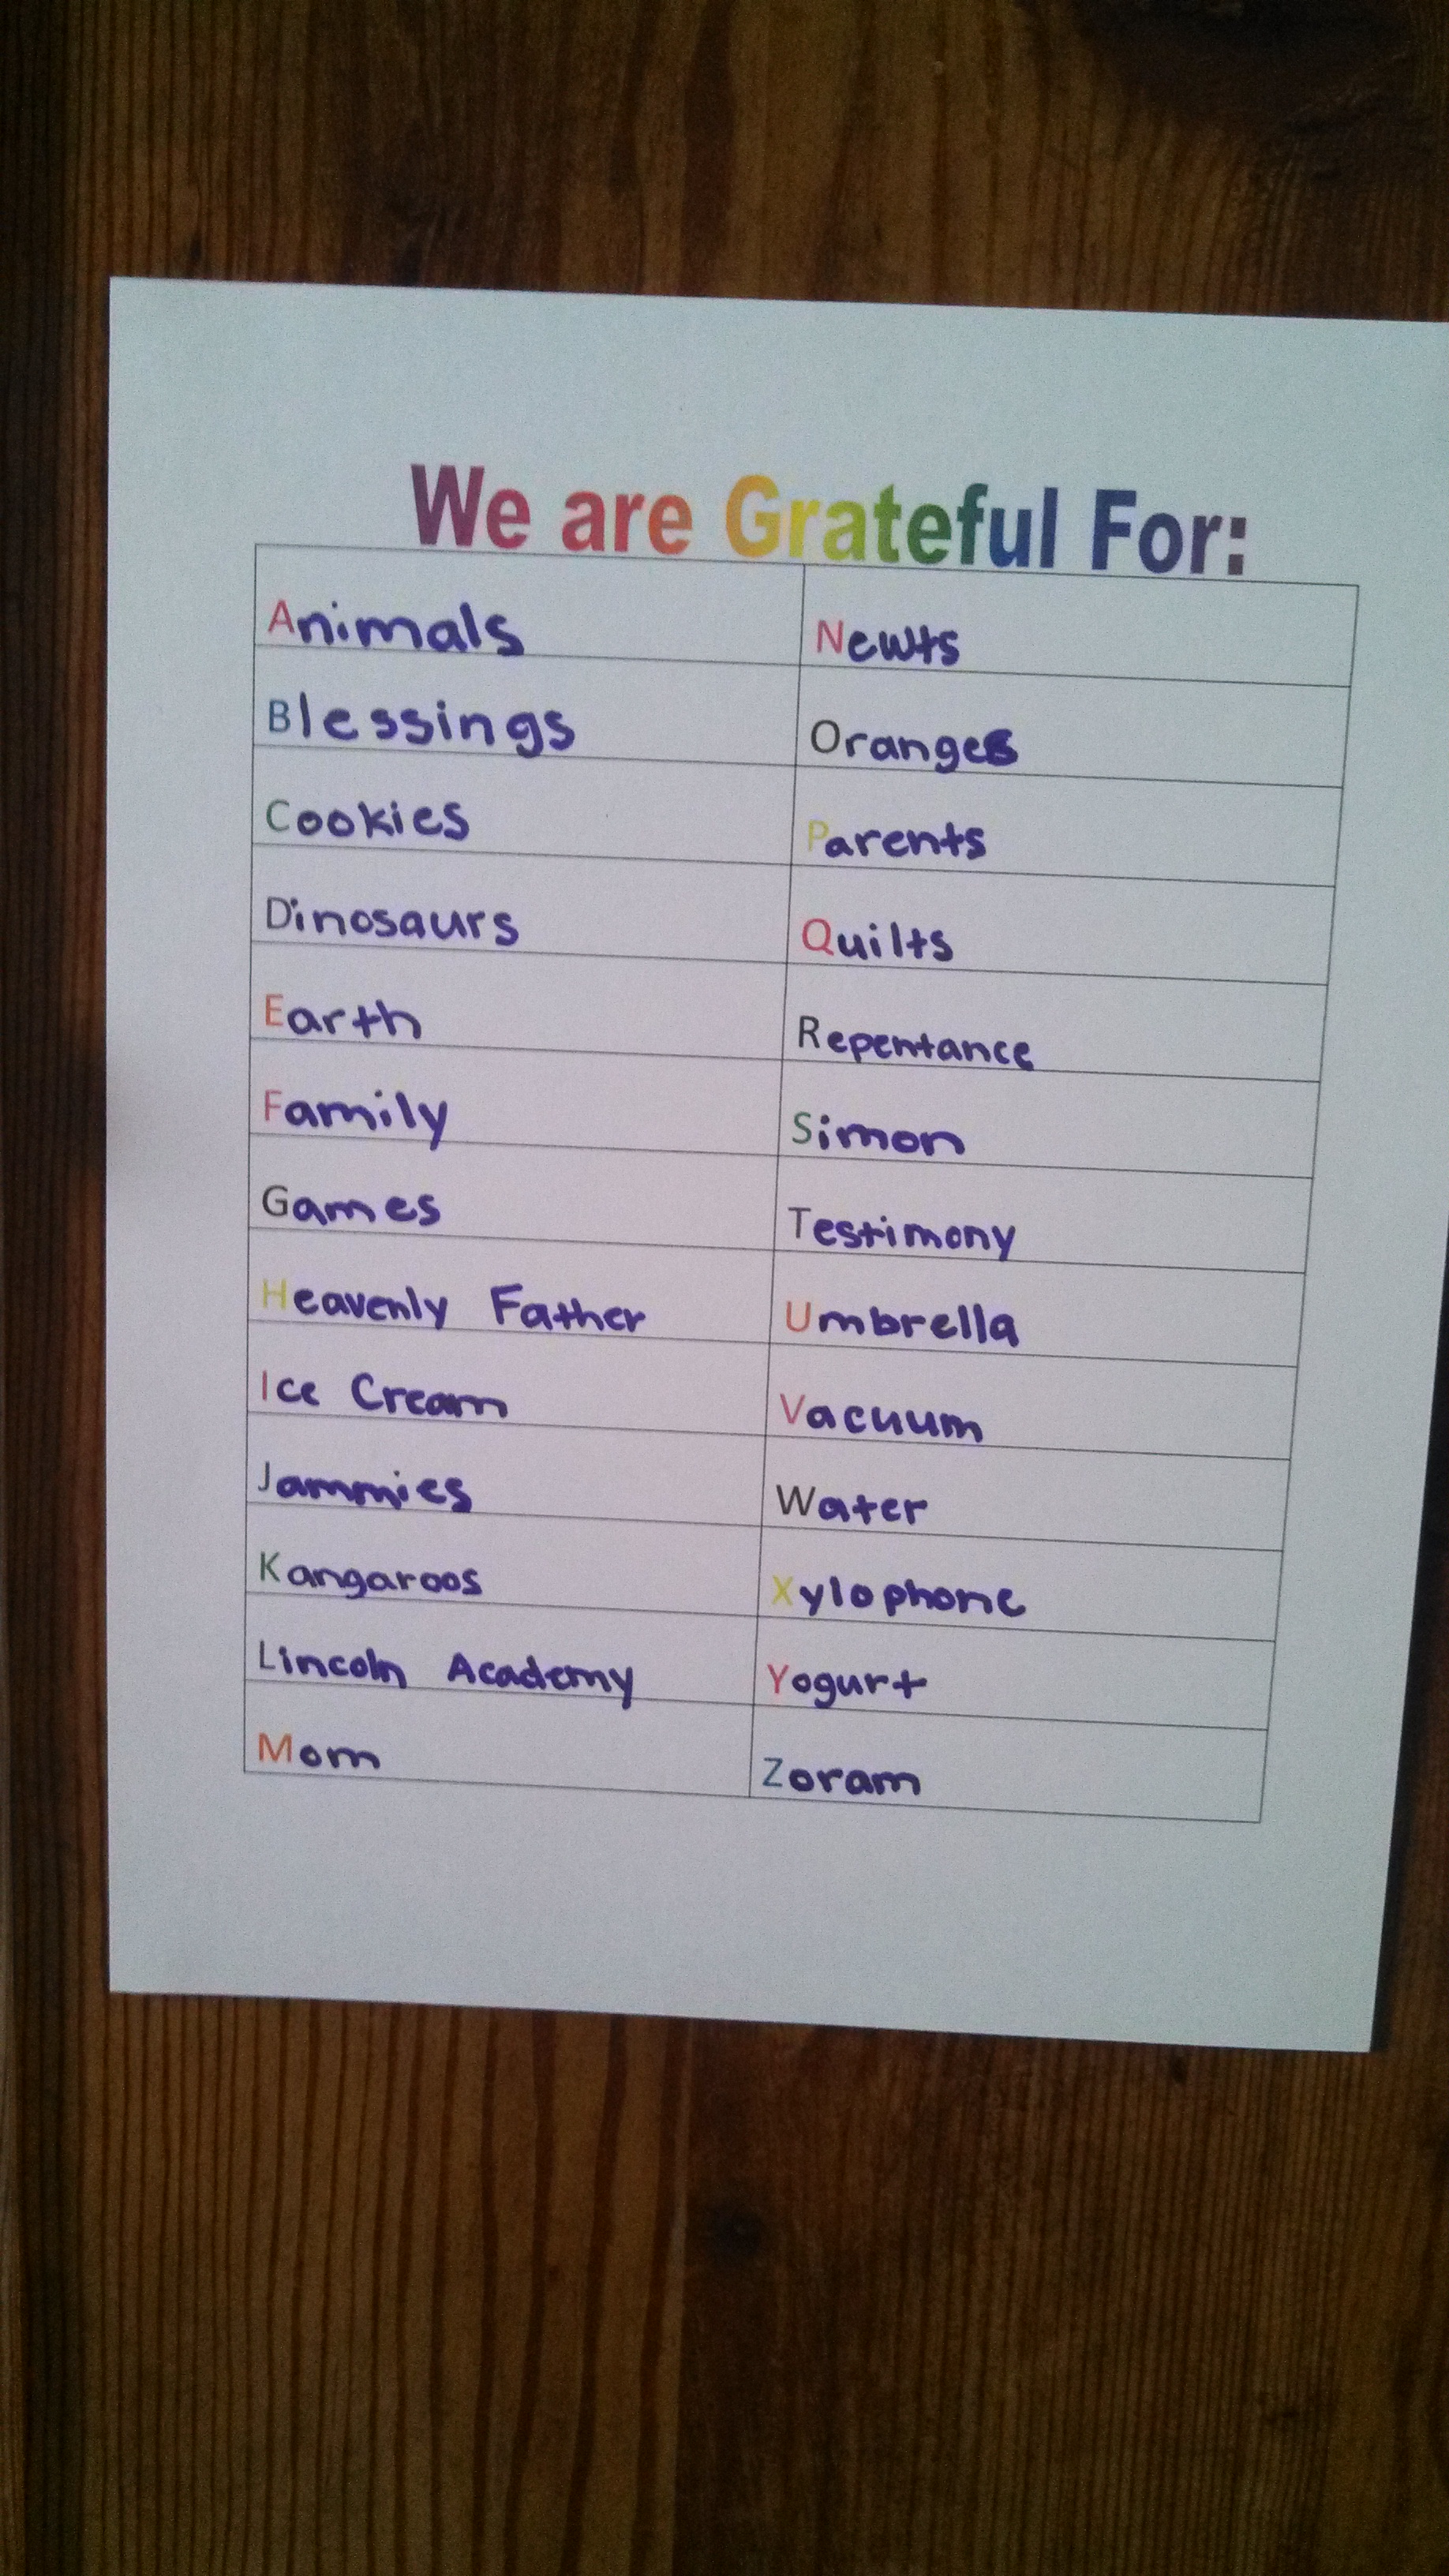 We are Grateful For:
Animals
Blessings
Cookies
Dinosaurs
Earth
Family
Games
Heavenly Father
Ice Cream
Jammies
Kangaroos
Lincoln Academy
Mom
Newts
Oranges
Parents
Quilts
Repentance
Simon
Testimony
Umbrella
Vacuum
Water
Xylophone
Yogurt
Zoram